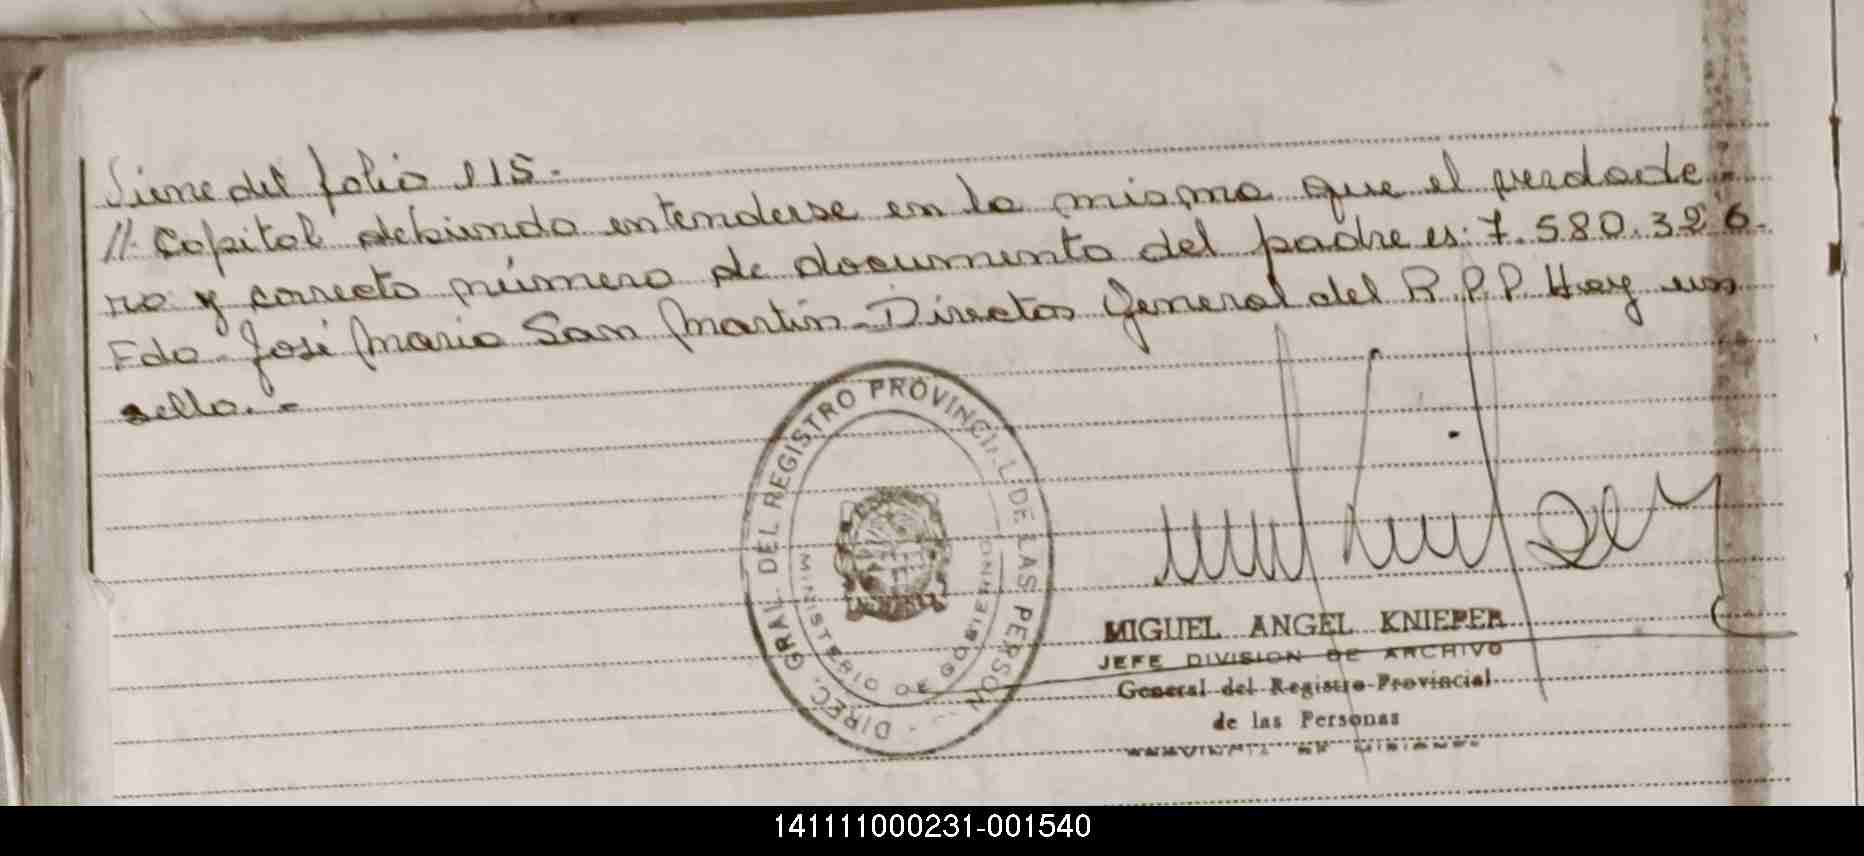 Viene del folio 115.-
// Capital debiendo entenderse en la misma que el verdade
ro y correcto número de documento del padre es: 7.580.326.
Fdo. José Maria San Martin-Director General del R.P.P. Hay un
sello.-
DIREC. GRAL. DEL REGISTRO PROVINCIAL DE LAS PERSON
MINISTERIO DE GOBIERNO
MIGUEL ANGEL KNIEPER
JEFE DIVISION DE ARCHIVO
General del Registro Provincial
de las Personas
141111000231-001540